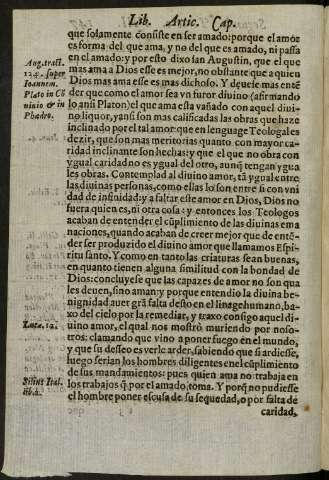 Lib. Artic. Cap.
que solamente consiste en ser amado: porque el amor
es forma del que ama, y no del que es amado, ni passa
en el amado: y por esto dixo san Augustin, que el que
mas ama a Dios esse es mejor, no obstante que a quien
Dios mas ama esse es mas dichoso. Y deuese mas enté
der que como el amor sea vn furor diuino (afirmando
lo ansi Platon) el que ama esta vañado con aquel diui-
no liquor, y ansi son mas calificadas las obras que haze
inclinado por el tal amor: que en lenguage Teologales
dezir, que son mas meritorias quanto con mayor ca-
ridad inclinante son hechas: y que el que no obra con
ygual caridad no es ygual del otro, aunq̃ tengan ygua
les obras. Contemplad al diuino amor, tã ygual entre
las diuinas personas, como ellas lo son entre si con vni
dad de infinidad: y a faltar este amor en Dios, Dios no
fuera quien es, ni otra cosa: y entonces los Teologos
acaban de entender el cũplimiento de las diuinas ema
naciones, quando acaban de creer mejor que de enté-
der ser produzido el diuino amor que llamamos Espi-
ritu santo. Y como en tanto las criaturas sean buenas,
en quanto tienen alguna similitud con la bondad de
Dios: concluyese que las capazes de amor no son qua
les deuen, sino aman: y porque entendio la diuina be-
nignidad auer grã falta desto en el linage humano, ba-
xo del cielo por la remediar, y traxo consigo aquel di-
uino amor, el qual nos mostrò muriendo por noso-
tros: clamando que vino a poner fuego en el mundo,
y que su desseo es verle arder, sabiendo que si ardiesse,
luego serian los hombres diligentes en el cũplimiento
de sus mandamientos: pues quien ama no trabaja en
los trabajos q̃ por el amado toma. Y porq̃ no pudiesse
el hombre poner escusa de su sequedad, o por falta de
caridad,
Aug. tract.
124. super
Ioannem.
Plato in Cõ
uiuio & in
Phædro.
Lucæ. 12.
Silius Ital.
lib. 2.